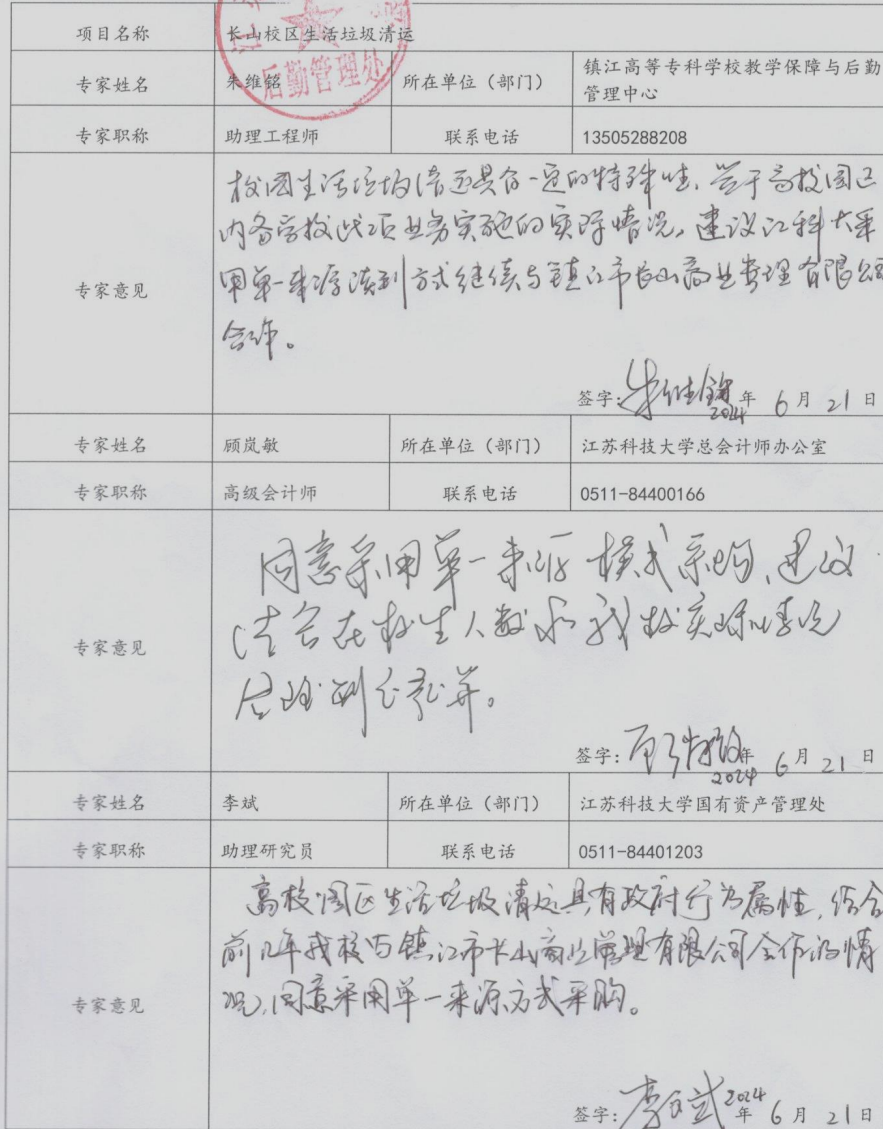 项目名称 长山校区生活垃圾清运
后勤管理处
专家姓名 朱维铭 所在单位（部门） 镇江高等专科学校教学保障与后勤
管理中心
专家职称 助理工程师 联系电话 13505288208
专家意见
校园生活垃圾清运具有一定的特殊性，鉴于高校园区
内各学校此项业务实施的实际情况，建议江科大采
用单一来源谈判方式继续与镇江市长山商业管理有限公司
合作。
签字：朱维铭 2024年 6月 21日
专家姓名 顾岚敏 所在单位（部门） 江苏科技大学总会计师办公室
专家职称 高级会计师 联系电话 0511-84400166
专家意见
同意采用单一来源模式采购，建议
结合在校生人数和我校实际情况
合理
签字： 2024年 6月 21日
专家姓名 李斌 所在单位（部门） 江苏科技大学国有资产管理处
专家职称 助理研究员 联系电话 0511-84401203
专家意见
高校园区生活垃圾清运具有政府行为属性，结合
前几年我校与镇江市长山商业管理有限公司合作的情
况，同意采用单一来源方式采购。
签字：李斌 2024年 6月 21日